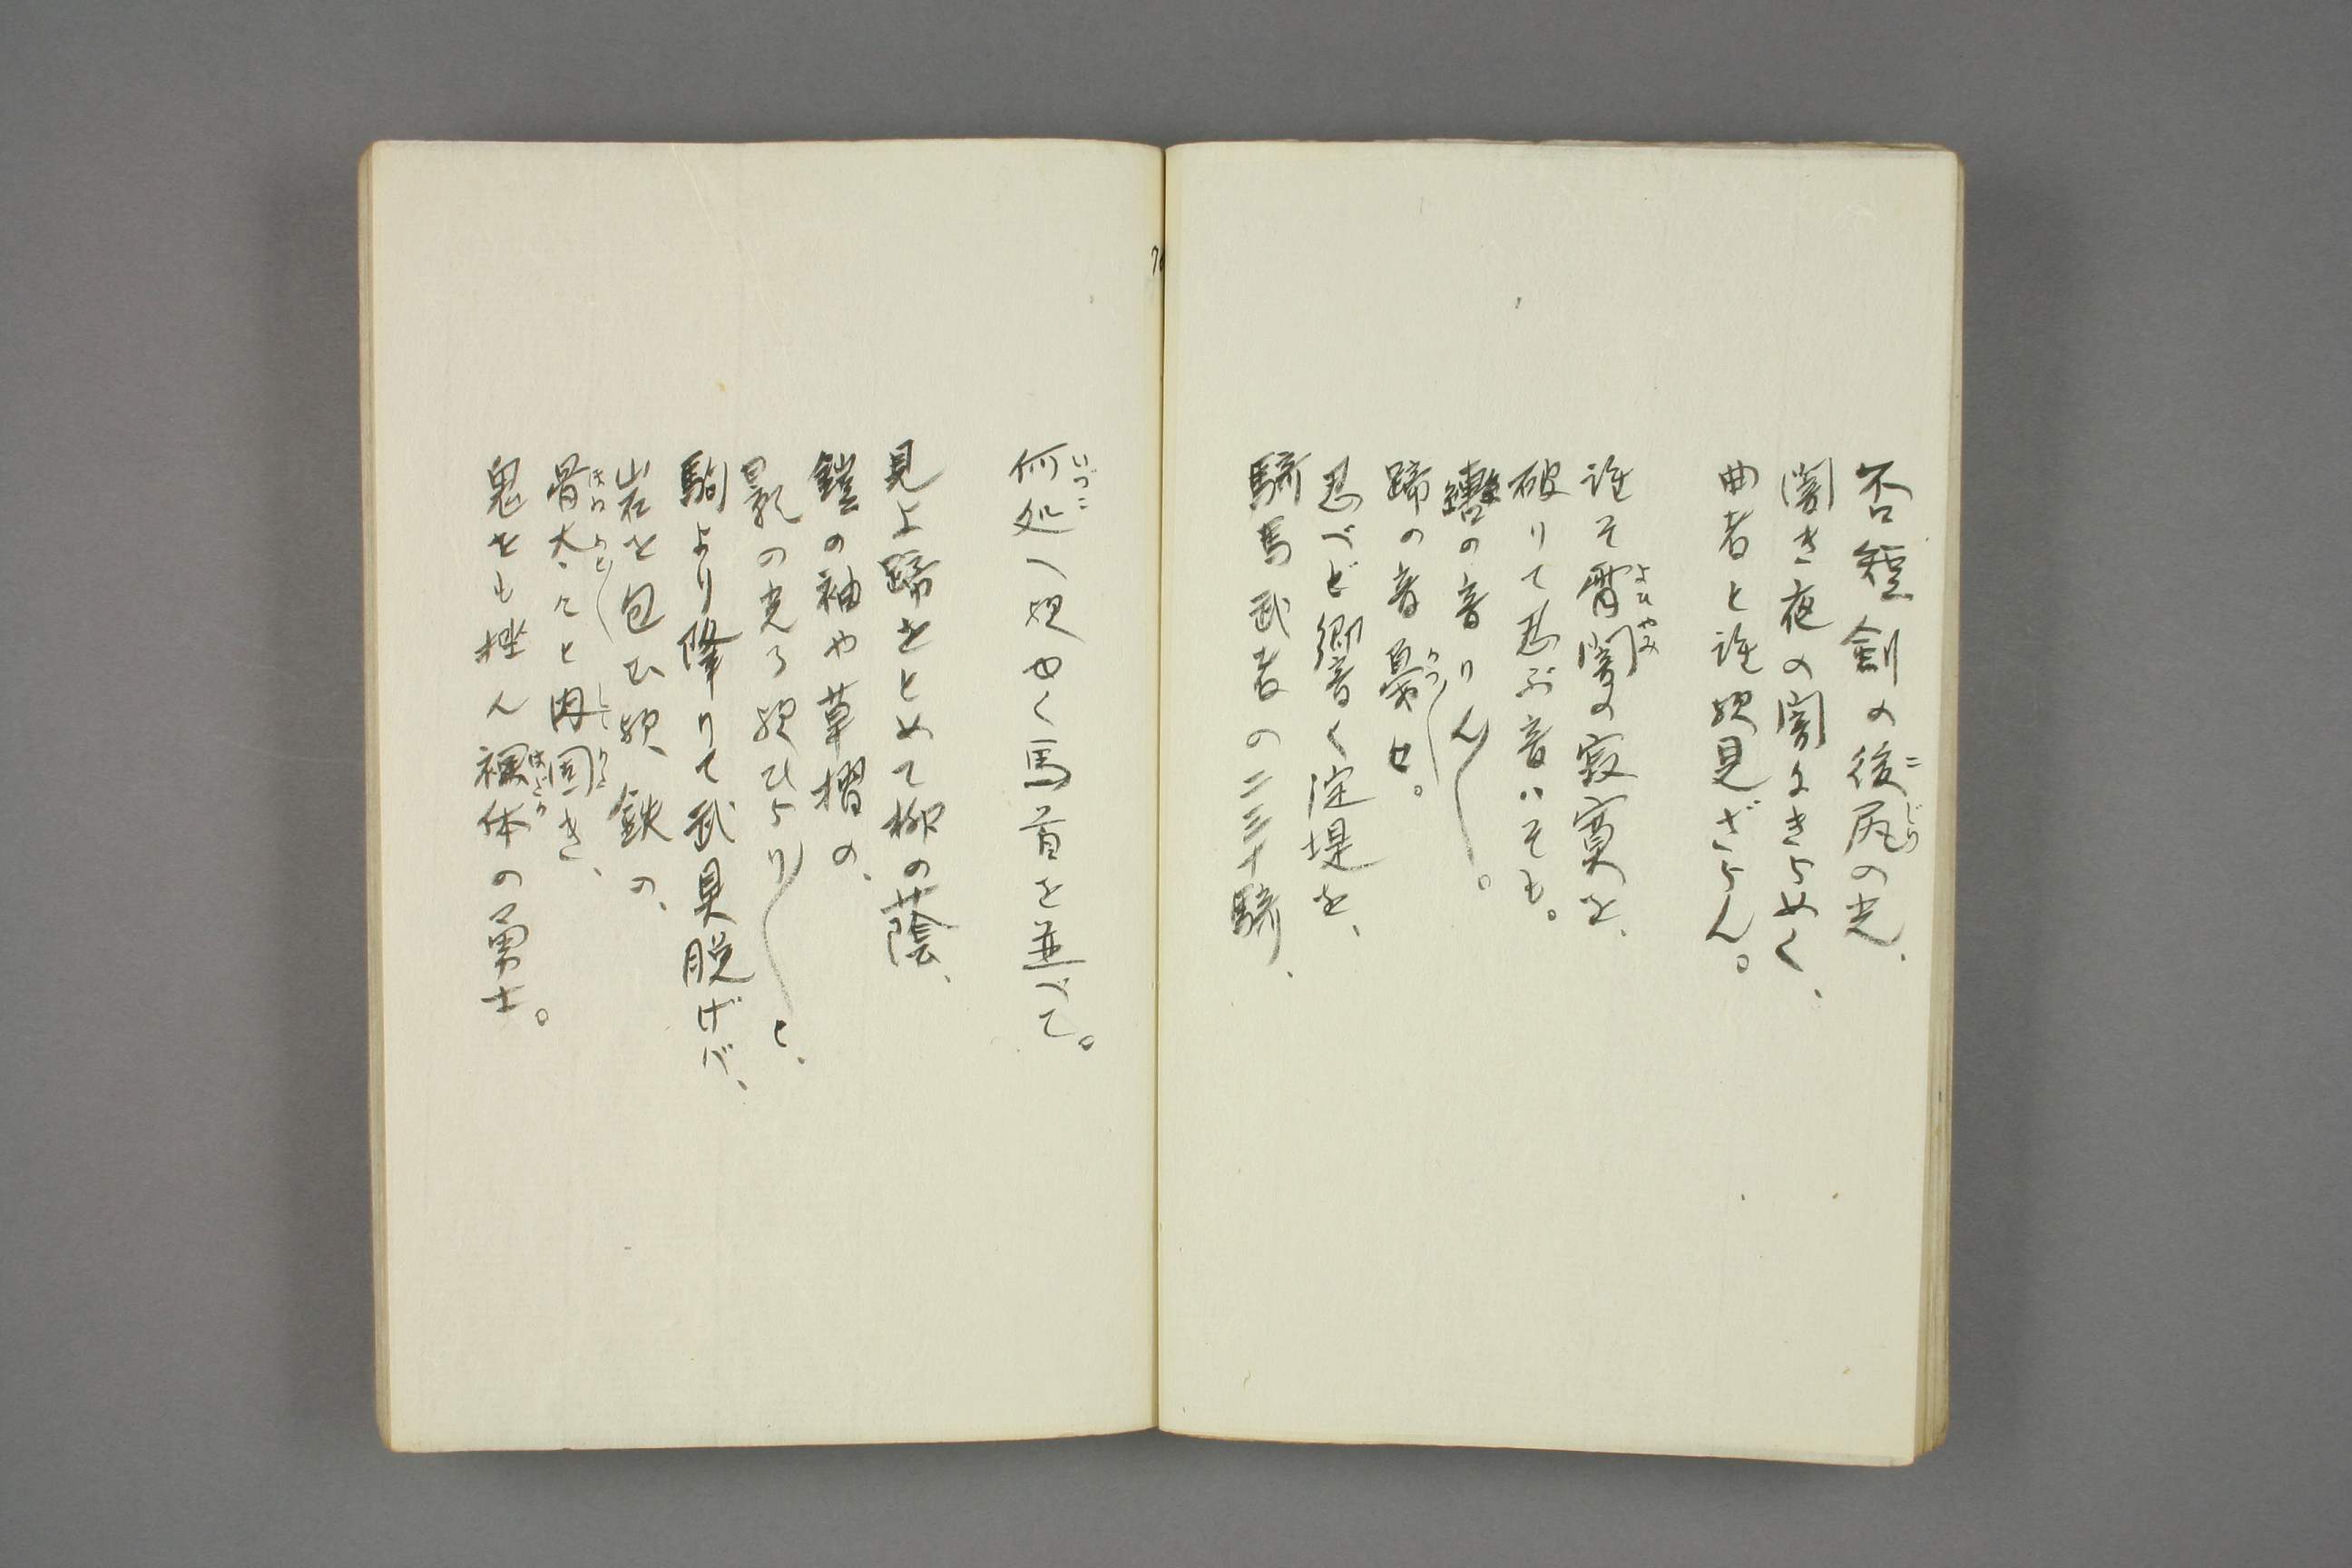 否短劍の後尻の光、
闇き夜の闇にきらめく、
曲者と誰か見ざらん。
誰そ宵闇の寂寞を、
破りて忍ぶ音いそも。
轡の音りん〳〵。
蹄の音憂々。
忍べど響く淀堤を、
騎馬武者の二三十騎、
何処へ迎ゆく馬首を並べて。
見よ蹄をとめて柳の蔭、
鎧の袖や草摺の、
影の光る歟ひらり〳〵と、
駒より降りて武具脱げバ、
岩を包む歟、鉄の、
骨太々と肉固き、
鬼をも挫ん裸体の勇士。